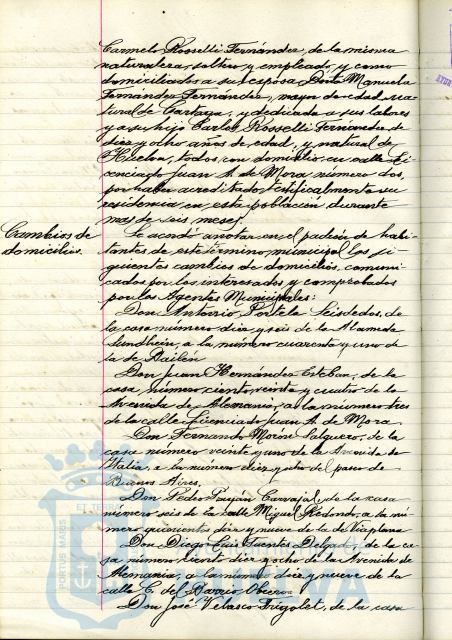 Carmelo Rosselli Fernández, de la misma
naturaleza, soltero y empleado, y como
domiciliados a su esposa Doña Manuela
Fernández Fernández, mayor de edad, na-
tural de Cartaya, y dedicada a sus labores
y a su hijo Carlos Rosselli Fernández de
diez y ocho años de edad, y natural de
Huelva, todos con domicilio en calle Li-
cenciado Juan A. de Mora número dos,
por haber acreditado testificalmente su
residencia en esta población durante
mas de seis meses.
Cambios de
domicilios.
Se acordó anotar en el padrón de habi-
tantes de este término municipal los si-
guientes cambios de domicilios, comuni-
cados por los interesados y comprobados
por los Agentes Municipales:
Don Antonio Portela Seisdedos, de
la casa número diez y seis de la Alameda
Sundheim, a la número cuarenta y uno de
la de Bailén
Don Juan Hernández Esteban, de la
casa número ciento veinte y cuatro de la
Avenida de Alemania, a la número tres
de la calle Licenciado Juan A. de Mora.
Don Fernando Morón Salguero, de la
casa número veinte y uno de la Avenida de
Italia, a la número diez y ocho del paseo de
Buenos Aires.
Don Pedro Payán Carvajal, de la casa
número seis de la calle Miguel Redondo, a la nú-
mero quinientos diez y nueve de la de Viaplana
Don Diego Luis Fuentes Delgado, de la ca-
sa número ciento diez y ocho de la Avenida de
Alemania, a la número diez y nueve de la
calle C. del Barrio Obrero
Don José Velasco Frigolet, de la casa
PORTUS MARIS